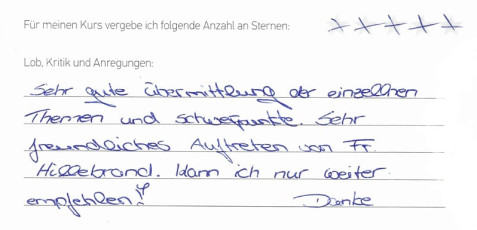 Für meinen Kurs vergebe ich folgende Anzahl an Sternen:
Lob, Kritik und Anregungen:
Sehr gute übermittlung der einzellnen
Themen und schwerpunkte. Sehr
freundliches Auftreten von Fr.
Hillebrand. Kann ich nur weiter
empfehlen! Danke